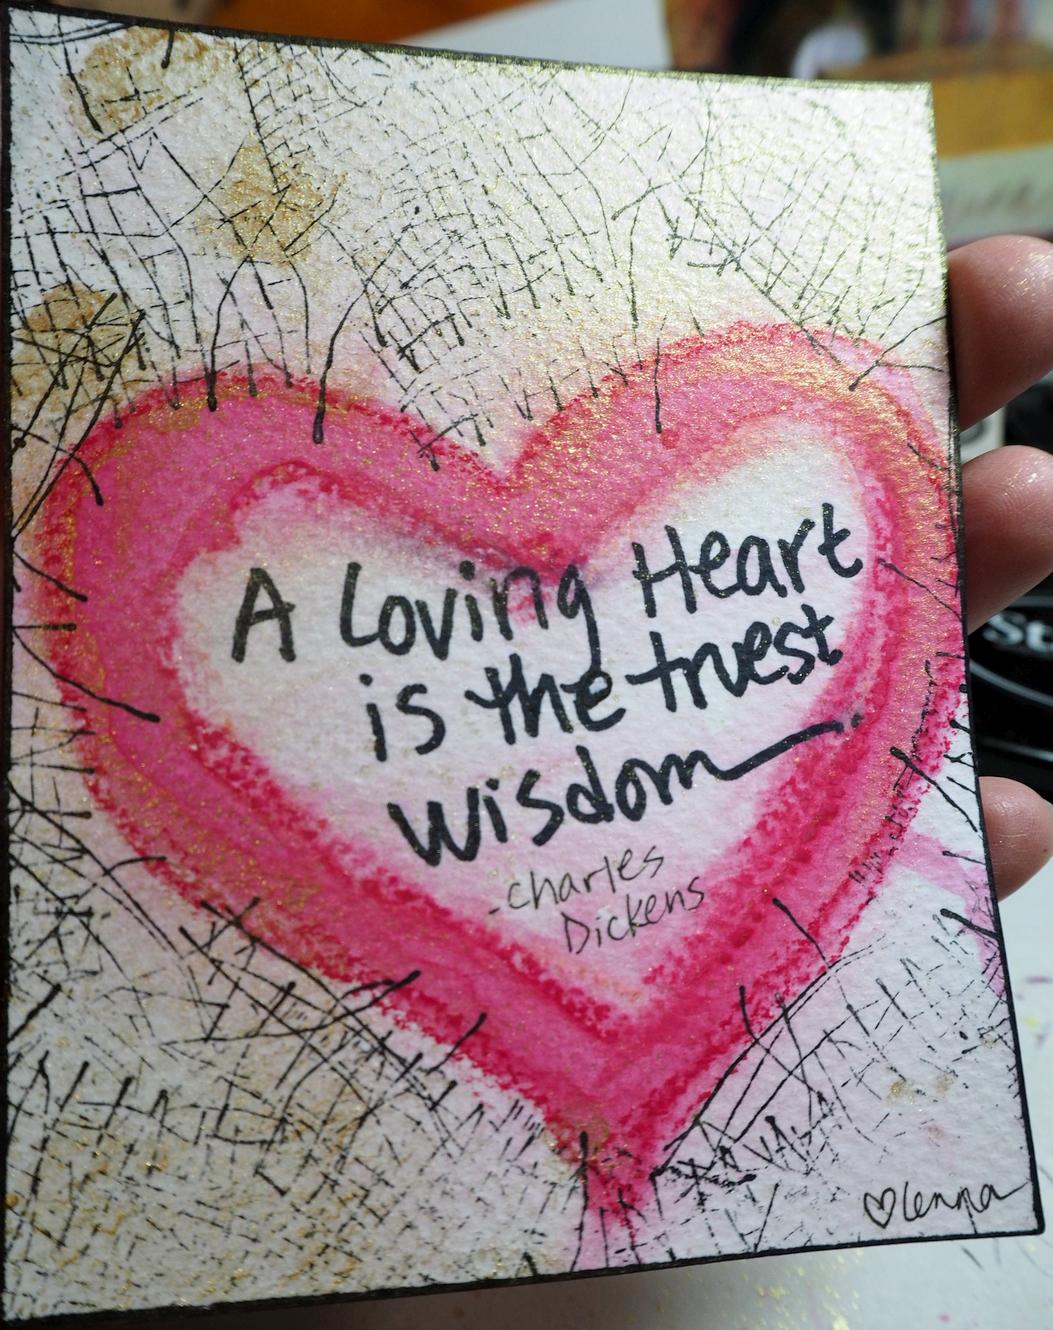 A Loving Heart
is the truest
wisdom
-Charles
Dickens
♡Lenna
St